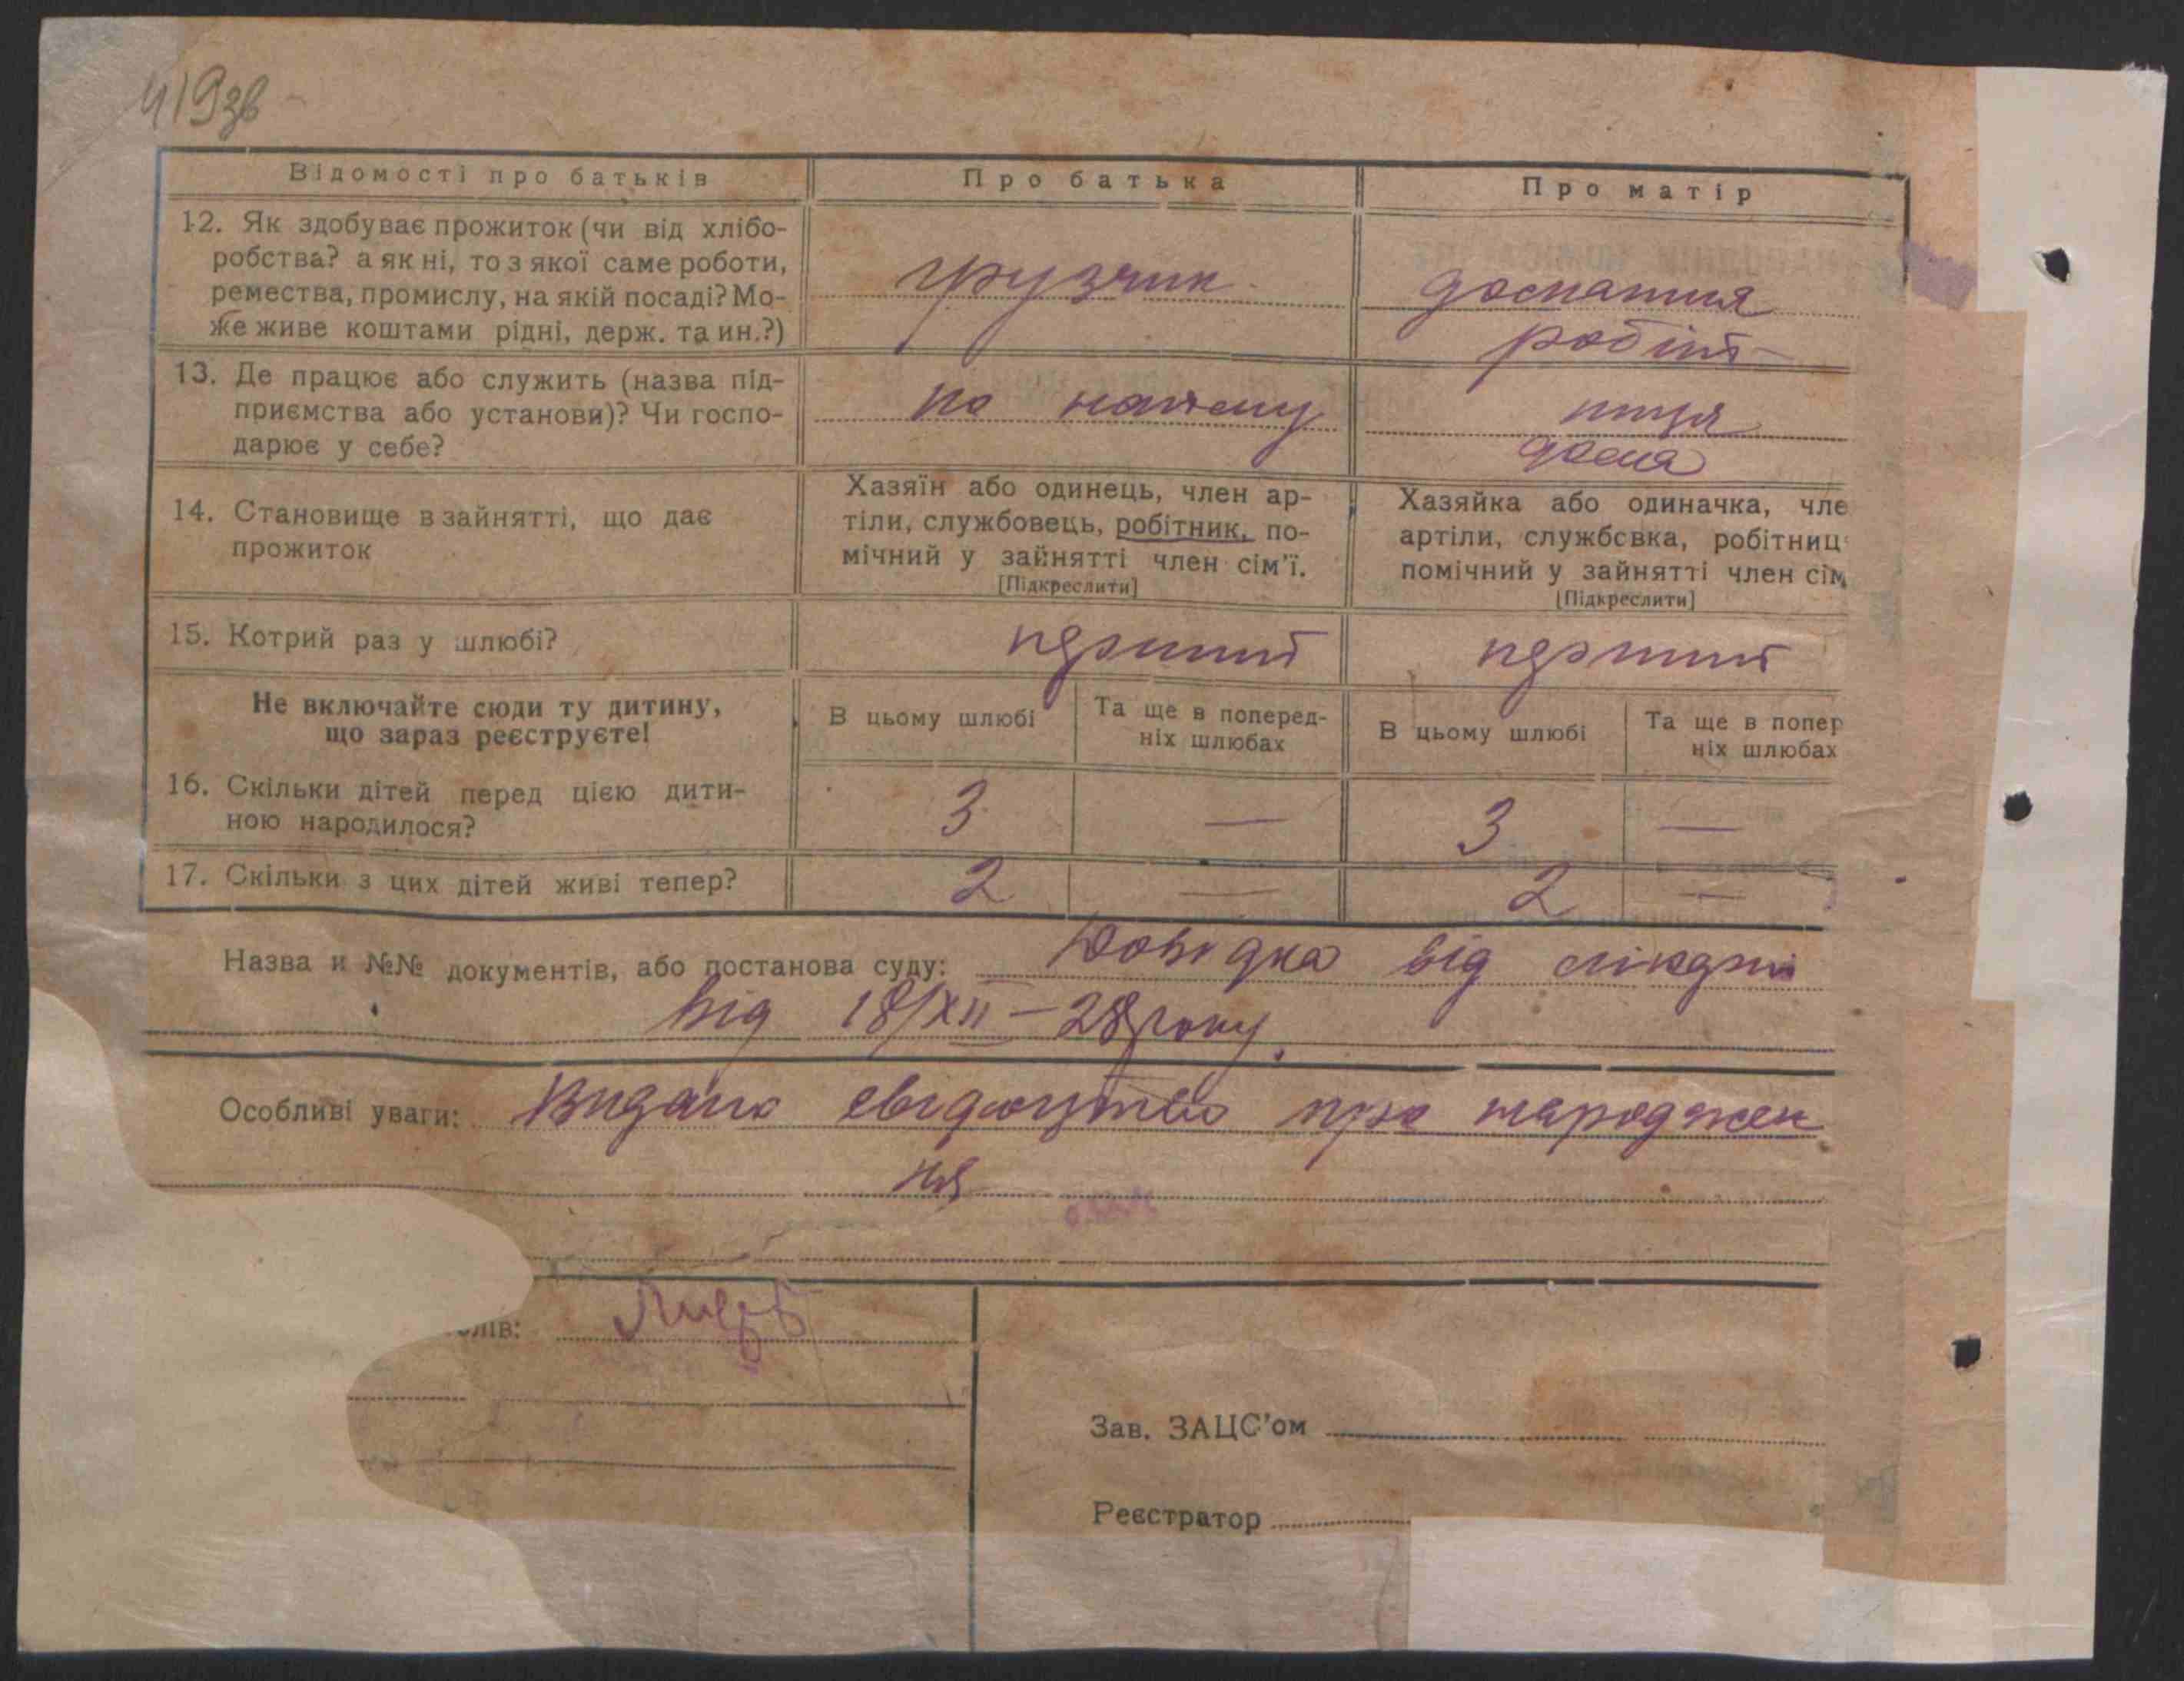 419зв
Відомості про батьків
Про батька
Про матір
12. Як здобуває прожиток (чи від хлібо-
робства? а як ні, то з якої саме роботи,
ремества, промислу, на якій посаді? Мо-
же живе коштами рідні, держ. та ин.?)
грузчик
домашня
робіт-
13. Де працює або служить (назва під-
приємства або установи)? Чи госпо-
дарює у себе?
по найому
ниця
дома
14. Становище в зайнятті, що дає
прожиток
Хазяїн або одинець, член ар-
тіли, службовець, робітник, по-
мічний у зайнятті член сім'ї.
[Підкреслити]
Хазяйка або одиначка, чле
артіли, службовка, робітниц
помічний у зайнятті член сім
[Підкреслити]
15. Котрий раз у шлюбі?
перший
перший
Не включайте сюди ту дитину,
що зараз реєструєте!
В цьому шлюбі
Та ще в поперед-
ніх шлюбах
В цьому шлюбі
Та ще в попер
ніх шлюбах
16. Скільки дітей перед цією дити-
ною народилося?
3
—
3
—
17. Скільки з цих дітей живі тепер?
2
—
2
—
Назва и №№ документів, або постанова суду: Довідка від лікарні
від 18/XII – 28 року.
Особливі уваги: Видано свідоцтво про народжен
ня
лів:
Зав. ЗАЦС'ом
Реєстратор